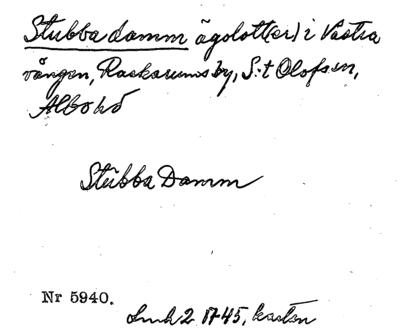 Stubba damm ägolott(er) i Västra
vången, Raskarums by, S:t Olofs sn,
Albo hd
Stŭbba Damm
Nr 5940.
Lmh 2 17-45, kartan